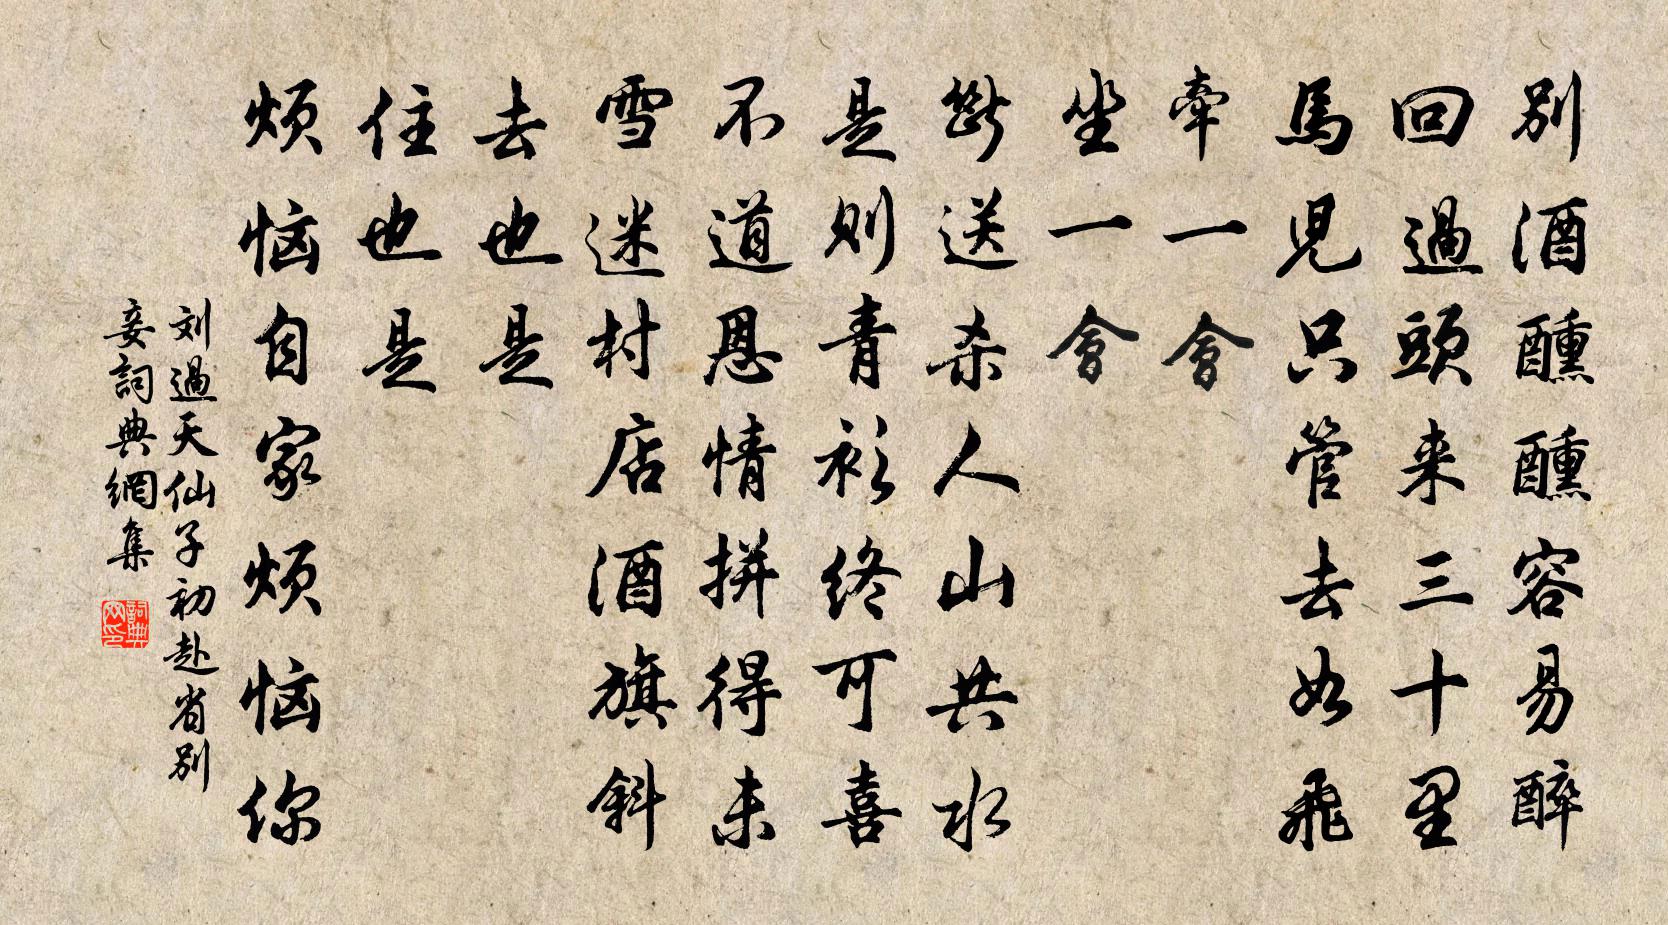 别酒醺醺容易醉
回過頭来三十里
馬児只管去如飛
牽一會
坐一會
斷送杀人山共水
是則青衫終可喜
不道恩情拼得未
雪迷村店酒旗斜
去也是
住也是
烦恼自家烦恼你
刘過天仙子初赴省别
妾詞典網集
詞典网印